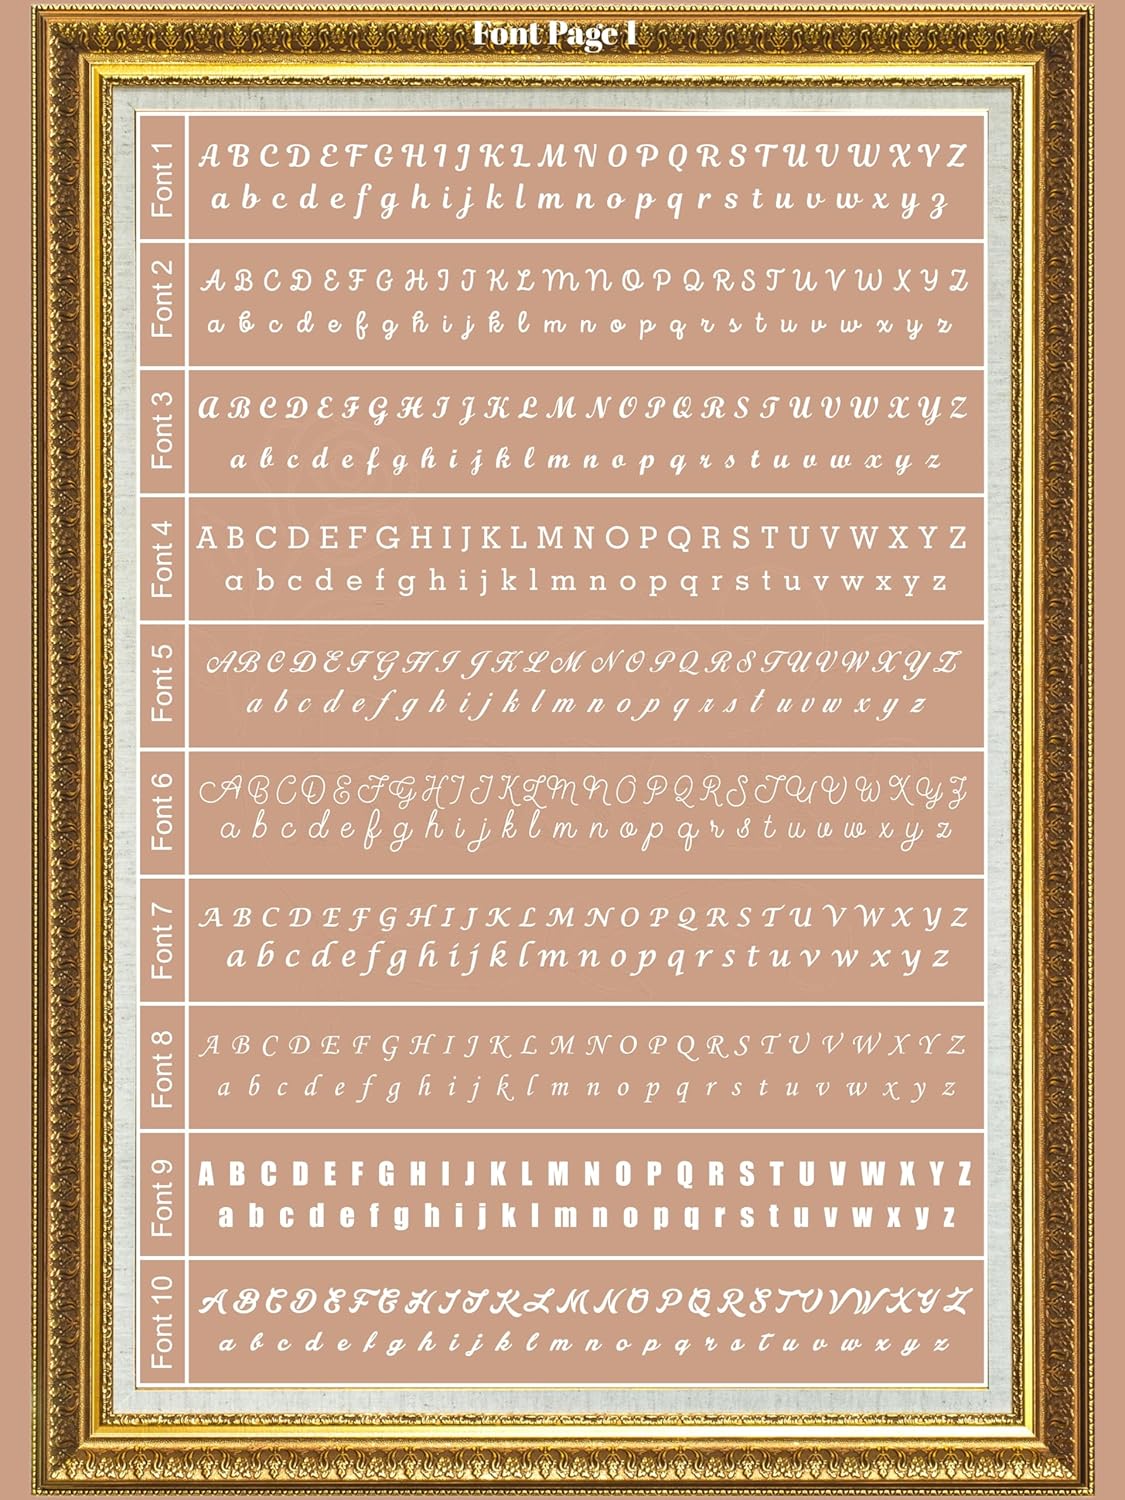 Font Page 1
Font 1
A B C D E F G H I J K L M N O P Q R S T U V W X Y Z
a b c d e f g h i j k l m n o p q r s t u v w x y z
Font 2
A B C D E F G H I J K L M N O P Q R S T U V W X Y Z
a b c d e f g h i j k l m n o p q r s t u v w x y z
Font 3
A B C D E F G H I J K L M N O P Q R S T U V W X Y Z
a b c d e f g h i j k l m n o p q r s t u v w x y z
Font 4
A B C D E F G H I J K L M N O P Q R S T U V W X Y Z
a b c d e f g h i j k l m n o p q r s t u v w x y z
Font 5
A B C D E F G H I J K L M N O P Q R S T U V W X Y Z
a b c d e f g h i j k l m n o p q r s t u v w x y z
Font 6
A B C D E F G H I J K L M N O P Q R S T U V W X Y Z
a b c d e f g h i j k l m n o p q r s t u v w x y z
Font 7
A B C D E F G H I J K L M N O P Q R S T U V W X Y Z
a b c d e f g h i j k l m n o p q r s t u v w x y z
Font 8
A B C D E F G H I J K L M N O P Q R S T U V W X Y Z
a b c d e f g h i j k l m n o p q r s t u v w x y z
Font 9
A B C D E F G H I J K L M N O P Q R S T U V W X Y Z
a b c d e f g h i j k l m n o p q r s t u v w x y z
Font 10
A B C D E F G H I J K L M N O P Q R S T U V W X Y Z
a b c d e f g h i j k l m n o p q r s t u v w x y z